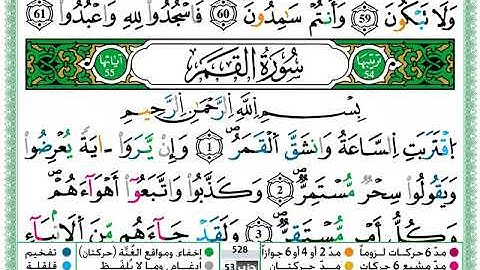 وَلَا تَبْكُونَ ٦٠ وَأَنتُمْ سَٰمِدُونَ ٦١ فَٱسْجُدُوا۟ لِلَّهِ وَٱعْبُدُوا۟
آيَاتُهَا 55 سُورَةُ ٱلْقَمَرِ تَرْتِيبُهَا 54
بِسْمِ ٱللَّهِ ٱلرَّحْمَٰنِ ٱلرَّحِيمِ
ٱقْتَرَبَتِ ٱلسَّاعَةُ وَٱنشَقَّ ٱلْقَمَرُ 1 وَإِن يَرَوْا۟ ءَايَةً يُعْرِضُوا۟
وَيَقُولُوا۟ سِحْرٌ مُّسْتَمِرٌّ 2 وَكَذَّبُوا۟ وَٱتَّبَعُوٓا۟ أَهْوَآءَهُمْ
وَكُلُّ أَمْرٍ مُّسْتَقِرٌّ 3 وَلَقَدْ جَآءَهُم مِّنَ ٱلْأَنۢبَآءِ
مدّ 6 حركات لزوماً مدّ 2 أو 4 أو 6 جوازاً 528 إخفاء، ومواقع الغُنَّة (حركتان) تفخيم
مدّ مشبع 6 حركات مدّ حركتان 53 إدغام، وما لا يُلفَظ قلقلة